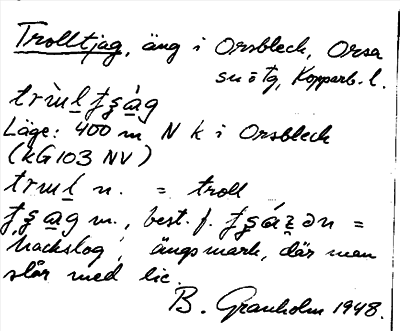 Trolltjag, äng i Orsbleck, Orsa
sn ö tg, Kopparb. l.
Läge: 400 m N k i Orsbleck
(kG103 NV)
n. = troll
m., best. f. =
'hackslog', ängsmark, där man
slår med lie.
B. Granholm 1948.